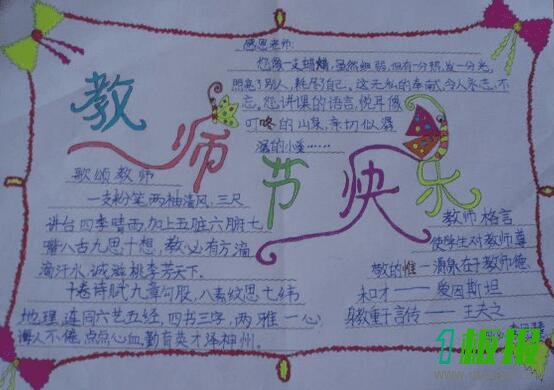 感恩老师:
您像一支蜡烛,虽然细弱,但有一分热,发一分光,
照亮了别人,耗尽了自己。这无私的奉献,令人永志不
忘。您讲课的语言,悦耳像
叮咚的山泉,亲切似潺
潺的小溪……
教师节快乐
歌颂教师
一支粉笔两袖清风,三尺
讲台四季晴雨,加上五脏六腑七
嘴八舌九思十想,教必有方滴
滴汗水,诚滋桃李芳天下。
十卷诗赋九章勾股,八索文思七纬
地理,连同六艺五经,四书三字,两雅一心
诲人不倦,点点心血,勤育英才泽神州。
教师格言
使学生对教师尊
敬的惟一源泉在于教师德
和才——爱因斯坦
身教重于言传——王夫之
1板报